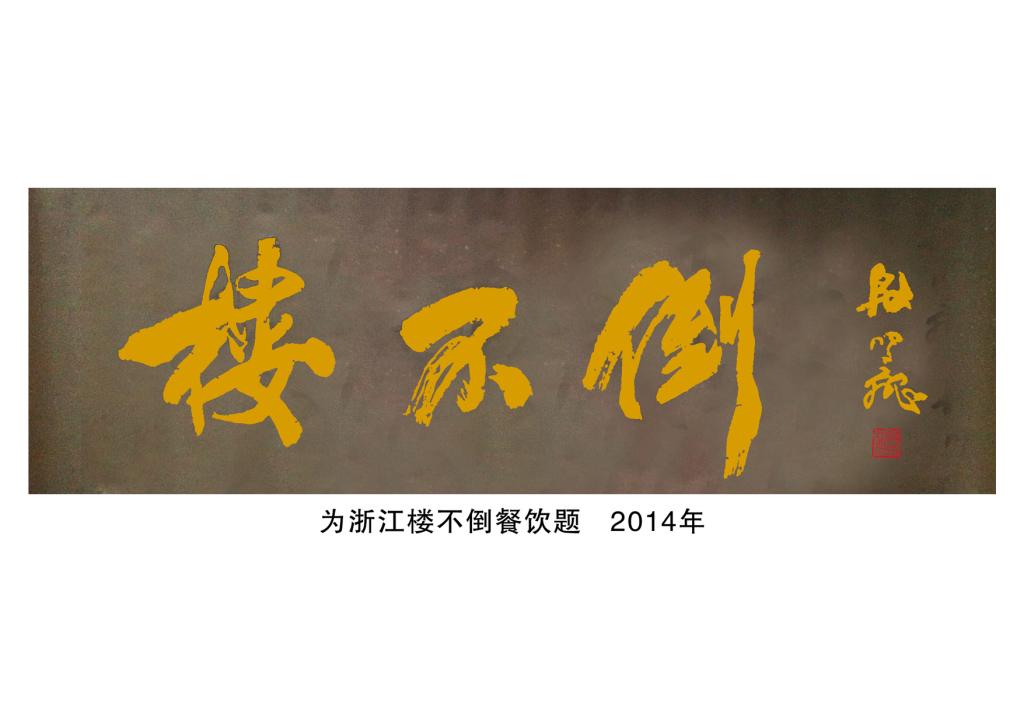 楼不倒
为浙江楼不倒餐饮题 2014年